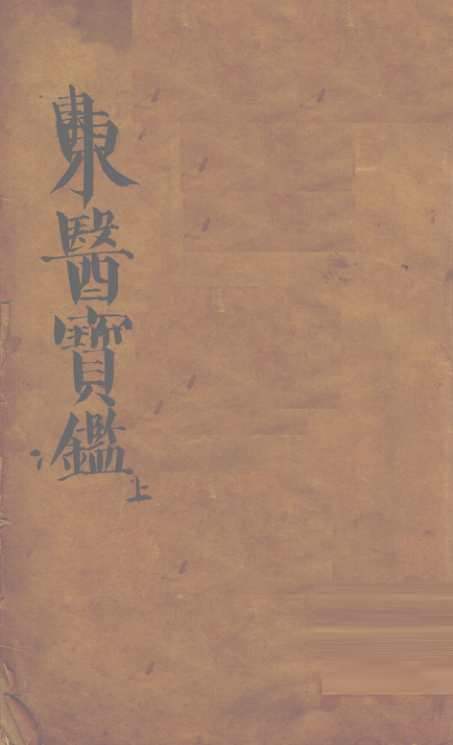 東醫寶鑑上